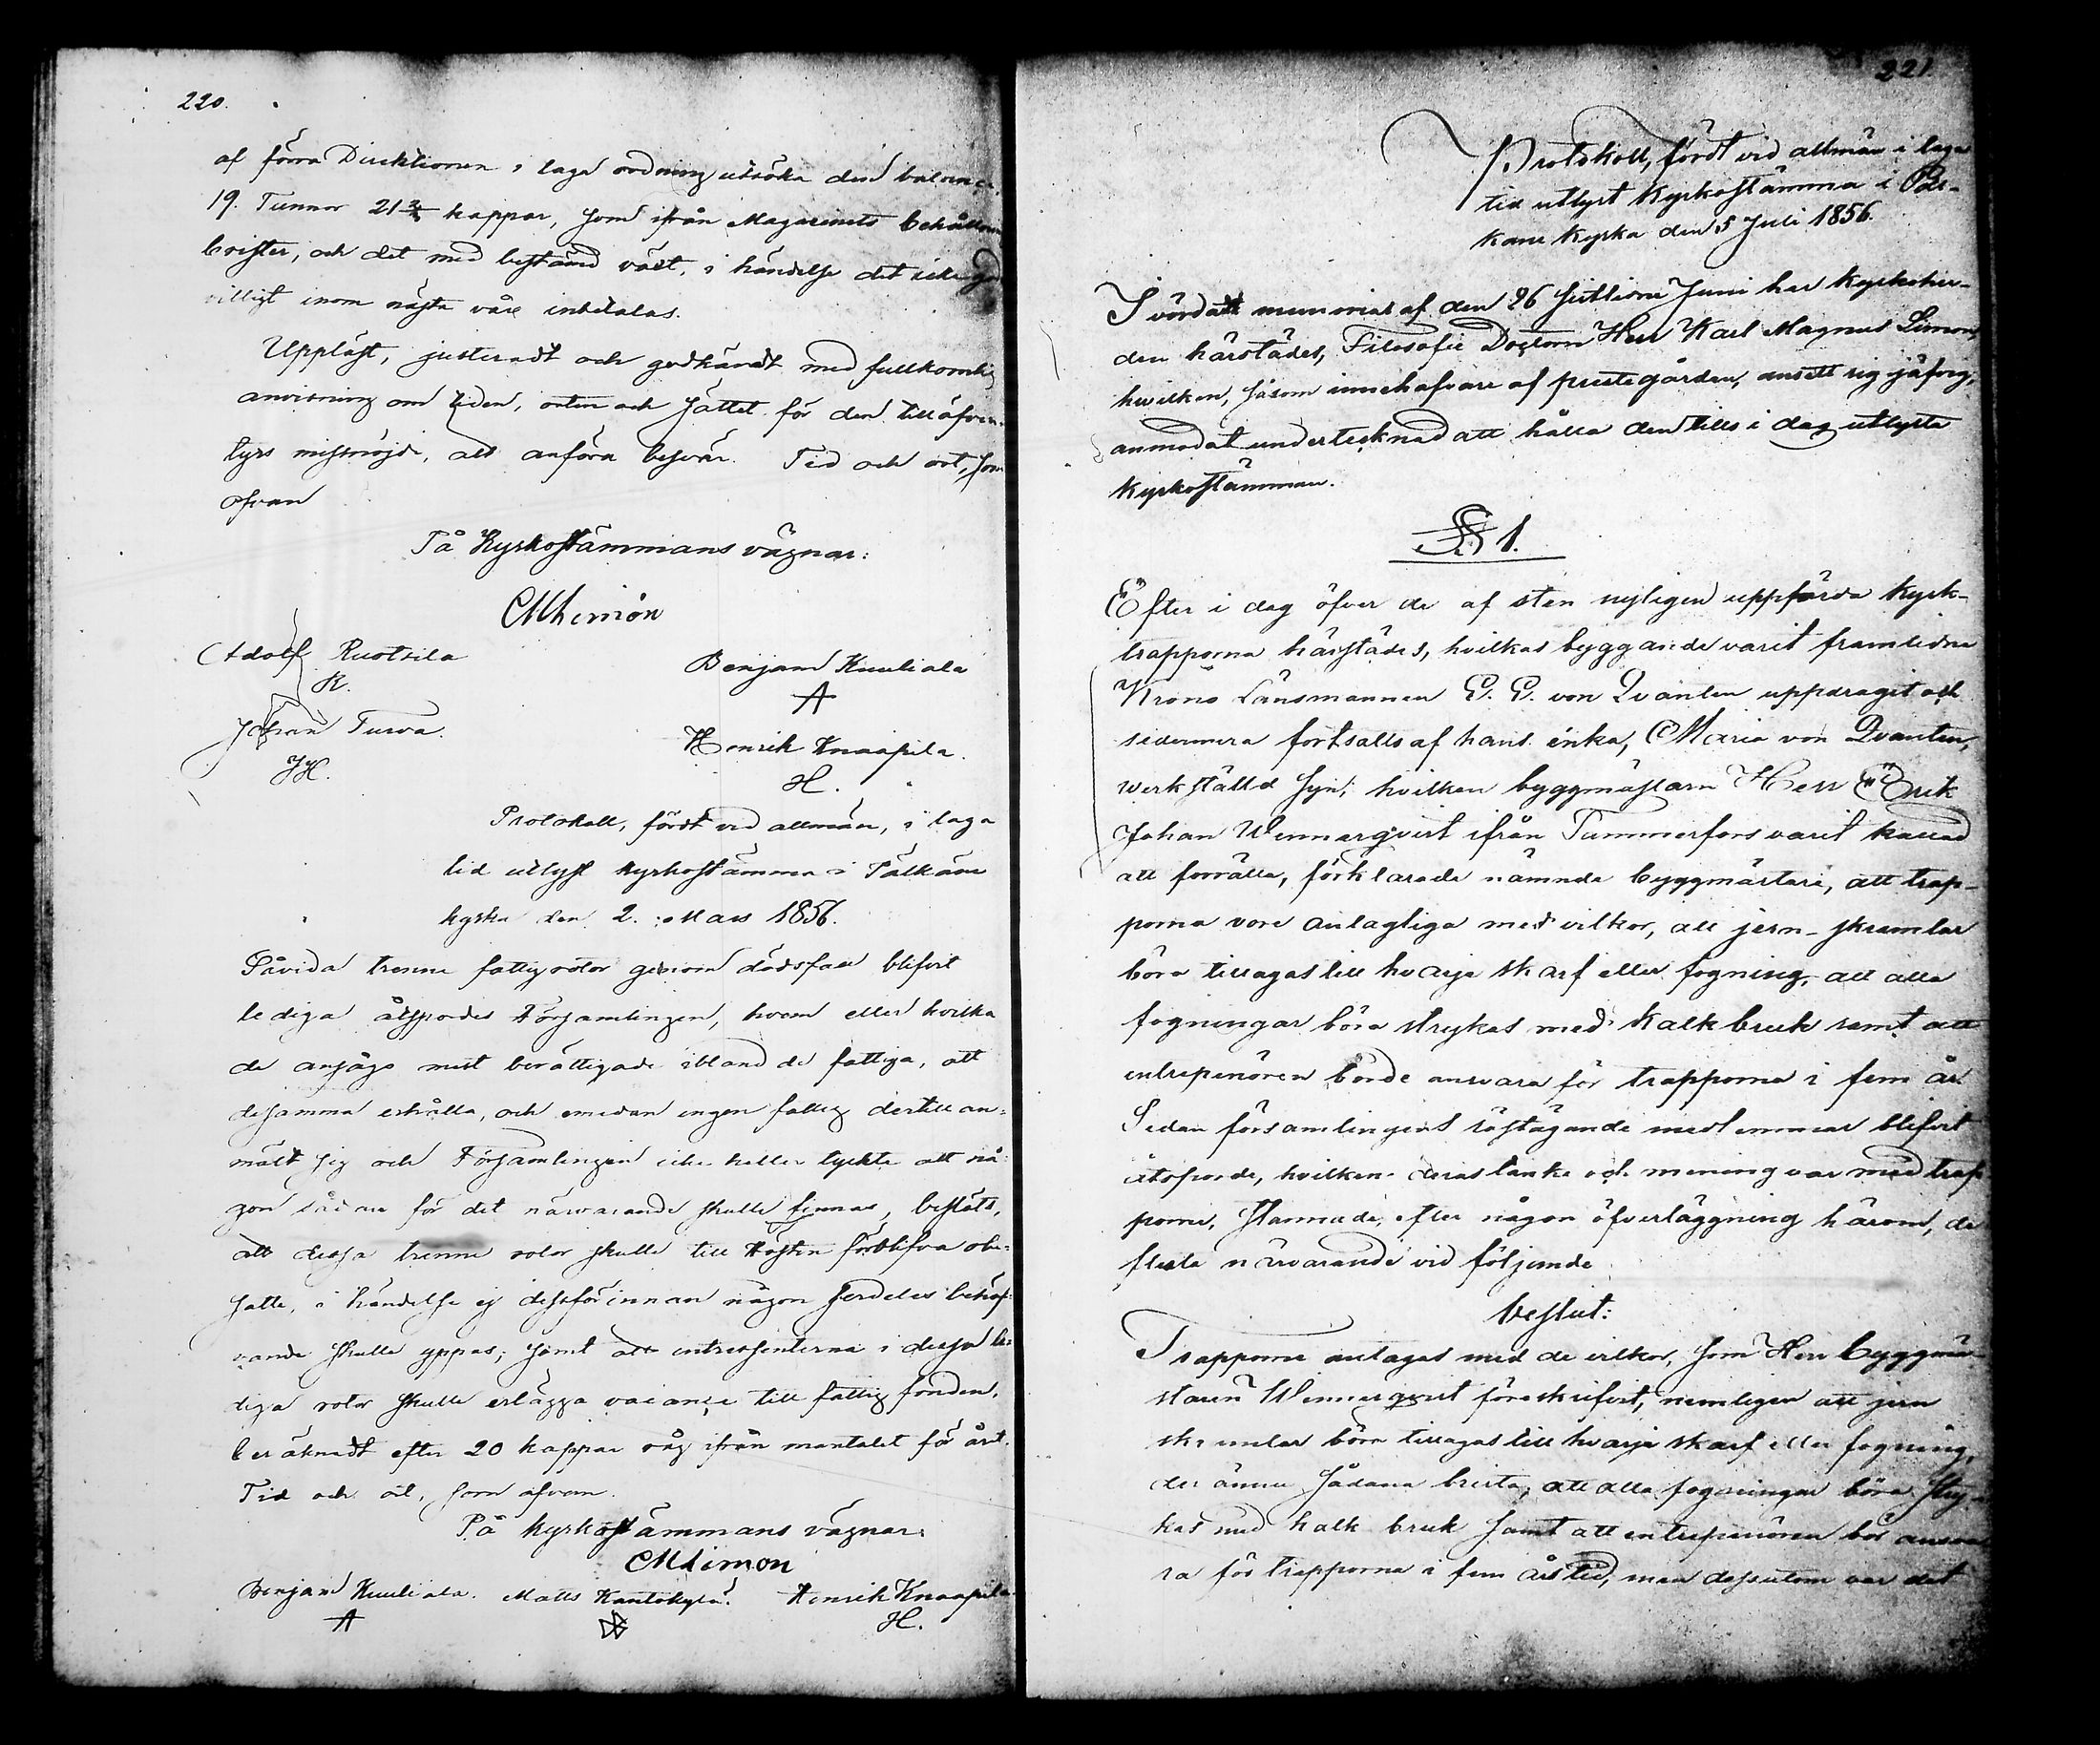 220.
af förra Direktionen i laga ordning utsöka den balance
19. Tunnor 21 3/4 kappar, som ifrån Magasinets behållning
brister, och det med bestånd växt, i händelse det icke god
villigt inom nästa vår inbetalas.
Uppläst, justeradt och godkändt med fullkomlig
anvisning om tiden, orten och sättet för den tilläfven-
tyrs missnöjde, att anföra besvär. Tid och ort, som
ofvan
På Kyrkostämmans vägnar:
CMLimón
Adolf Ruotsila
R.
Benjam Kuuliala
A
Johan Turva.
JH.
Henrik Knaapila.
H.
Protokoll, fördt vid allmän, i laga
tid utlyst kyrkostämma i Pälkäne
kyrka den 2. Mars 1856.
Såvida trenne fattigrotor genom dödsfall blifvit
lediga åtspordes Församlingen, hvem eller hvilka
de ansågo mest berättigade ibland de fattiga, att
desamma erhålla, och emedan ingen fattig dertill an-
mält sig och Församlingen icke heller tyckte att nå-
gon sådan för det närvarande skulle finnas, beslöts,
att dessa trenne rotor skulle till hösten förblifva obe-
satte, i händelse ej dessförinnan någon serdeles behöf-
vande skulle yppas; samt att intressenterna i dessa le-
diga rotor skulle erlägga vacance till fattig fonden,
beräknadt efter 20 kappar råg ifrån mantalet för året.
Tid och ort, som ofvan.
På kyrkostämmans vägnar:
CMLimon
Benjam Kuuliala. Matts Kantokylä. Henrik Knaapila
A H.
221
Protokoll, fördt vid allmän i laga
tid utlyst Kyrkostämma i Päl-
käne Kyrka den 5 Juli 1856.
I vördadt memorial af den 26 sistlidne Juni har Kyrkoher-
den härstädes, Filosofie Doctorn Herr Karl Magnus Limon,
hvilken, såsom innehafvare af prestegården, ansett sig jäfvig,
anmodat undertecknad att hålla den tills i dag utlyste
Kyrkostämman.
§ 1.
Efter i dag öfver de af sten nyligen uppförda kyrk-
trapporna härstädes, hvilkas byggande varit framlidne
Krono Länsmannen G. G. von Qvanten uppdraget och
sedermera fortsatts af hans enka, Maria von Qvanten,
werkställd syn, hvilken byggmästarn Herr Erik
Johan Wennerqvist ifrån Tammerfors varit kallad
att förrätta, förklarade nämnde byggmästare, att trap-
porna vore antagliga med vilkor, att jern-skramlar
böra tillagas till hvarje skarf eller fogning, att alla
fogningar böra strykas med kalkbruk samt att
entreprenören borde ansvara för trapporna i fem år.
Sedan församlingens röstägande medlemmar blifvit
åtsporde, hvilken deras tanke och mening var med trap
porna, stannade, efter någon öfverläggning härom, de
fleste närvarande vid följande
beslut:
Trapporna antagas med de vilkor, som Herr Byggmä-
staren Wennerqvist föreskrifvit, nemligen att jern
skramlar böra tillagas till hvarje skarf eller fogning,
der ännu sådana brista, att alla fogningar böra stry-
kas med kalkbruk samt att entreprenören bör ansva
ra för trapporna i fem års tid, men dessutom var det